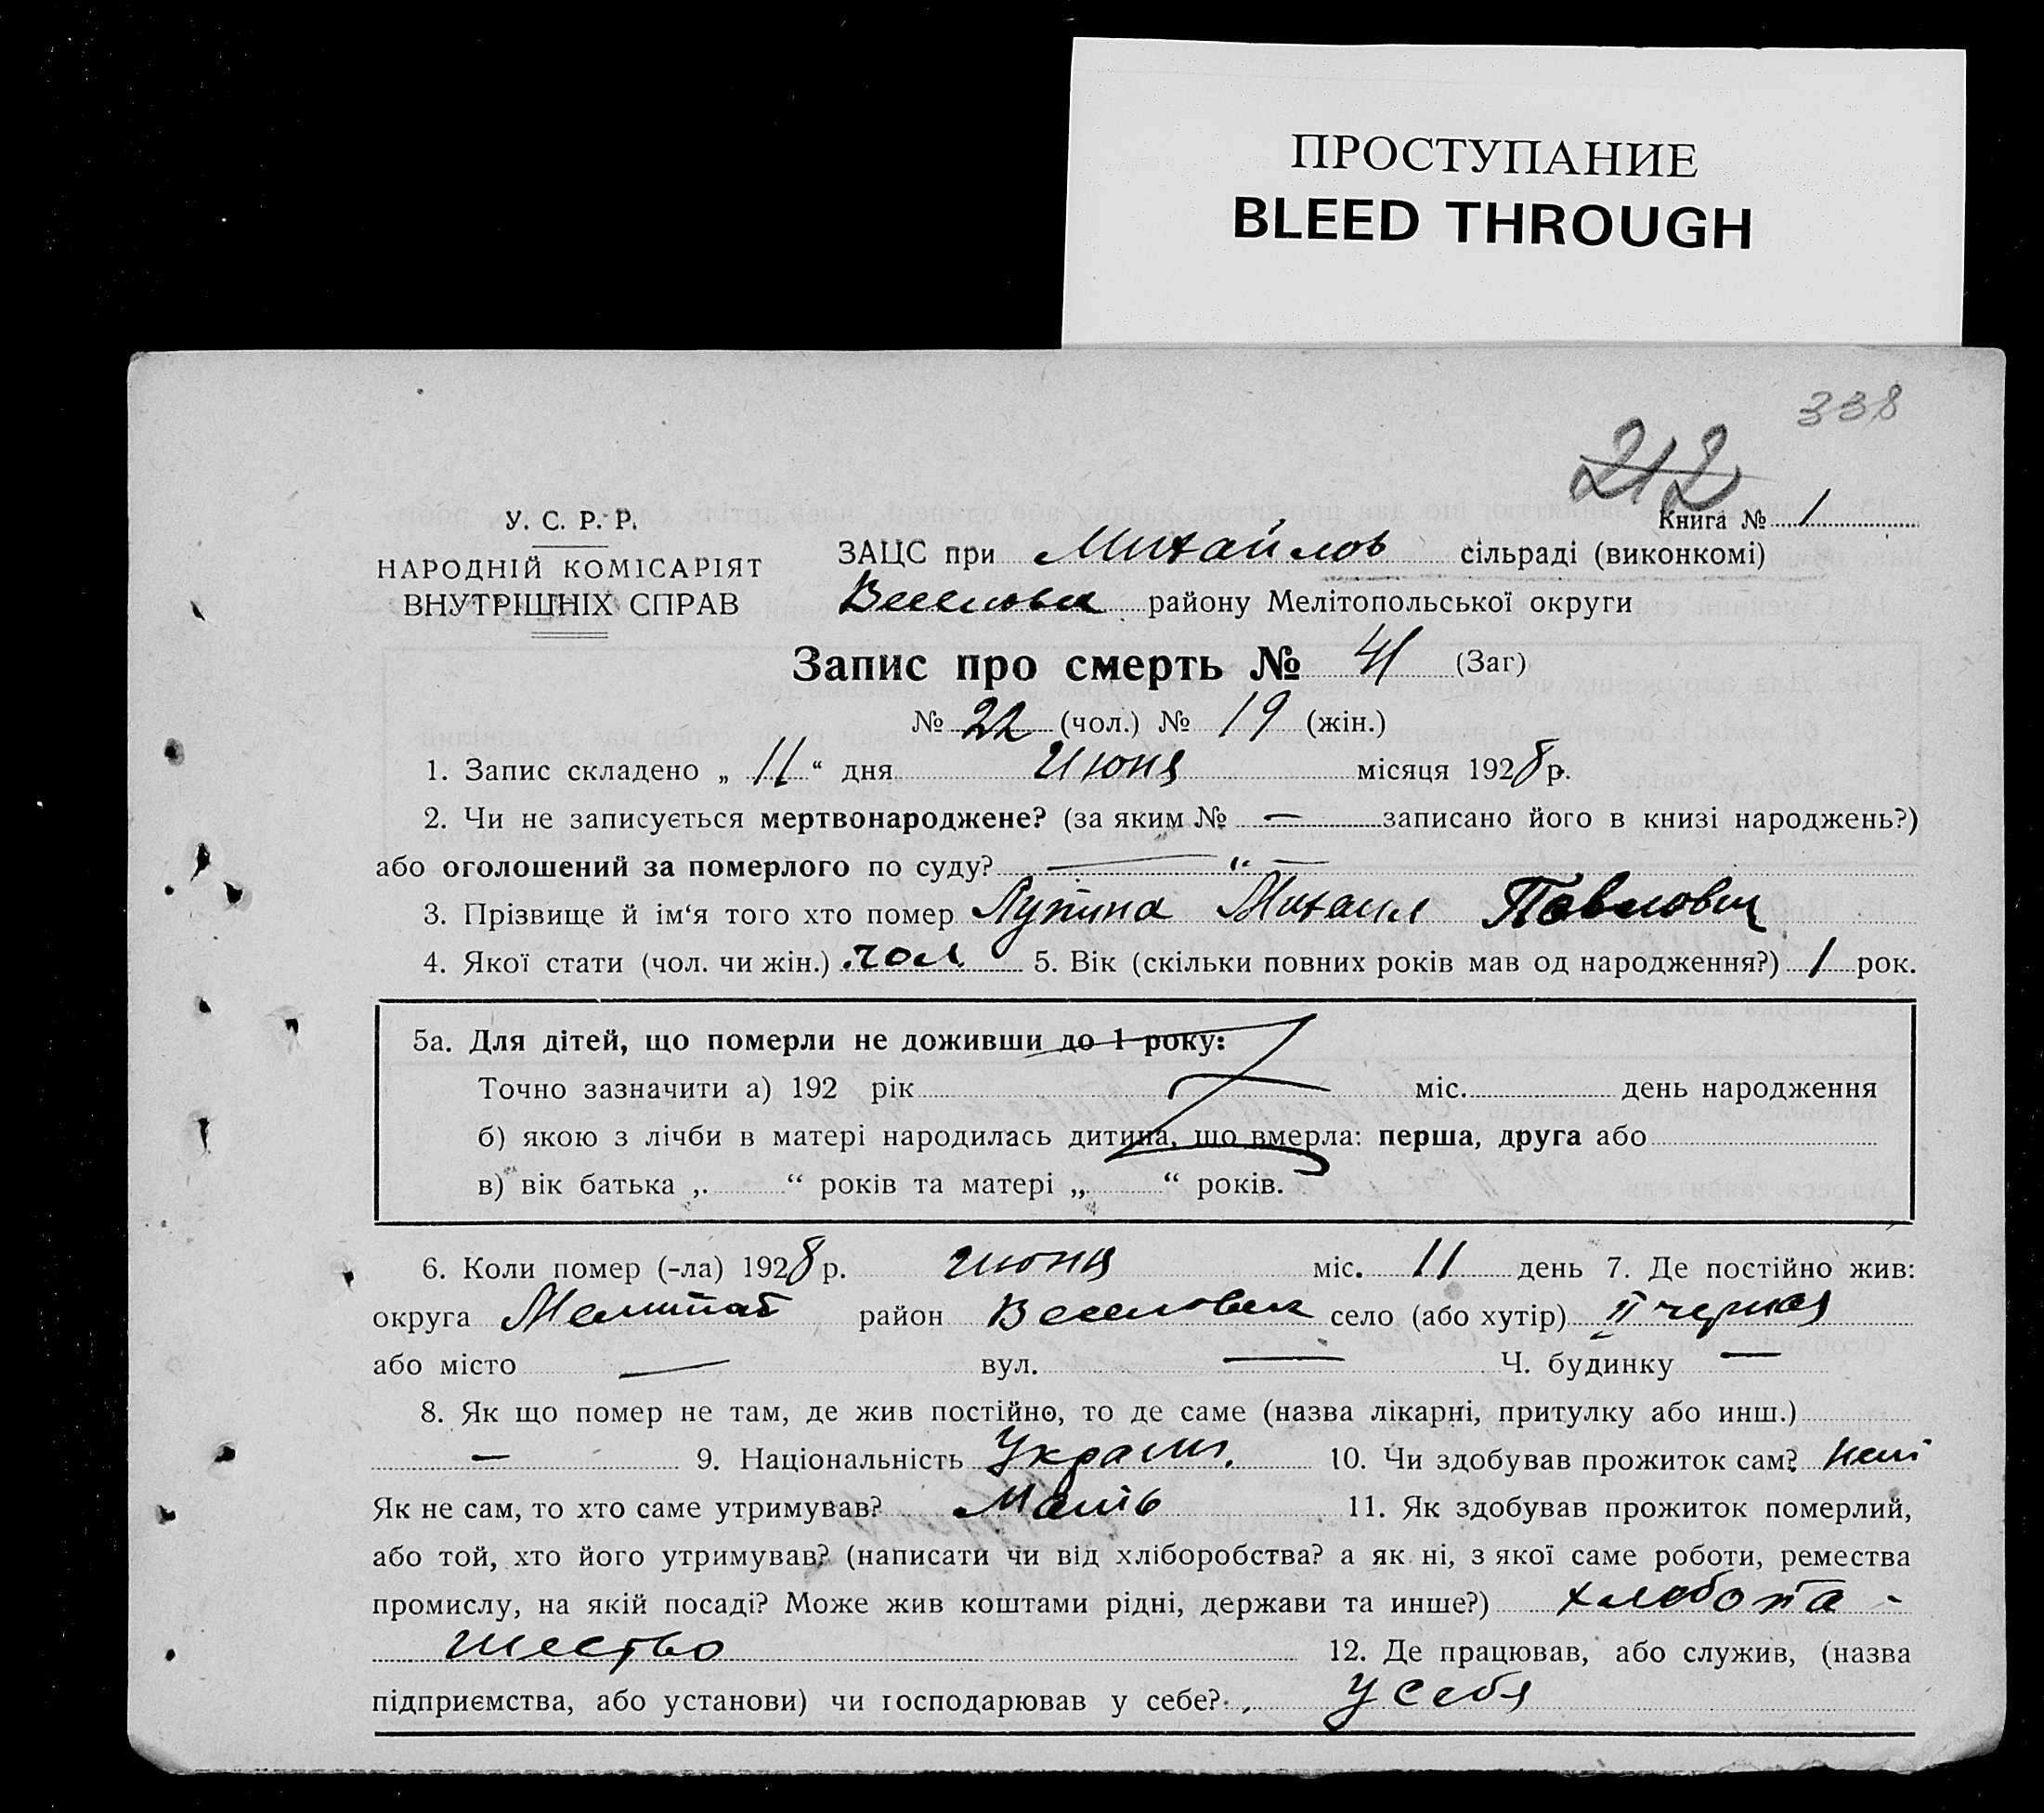 ПРОСТУПАНИЕ
BLEED THROUGH
338
212
Книга № 1
У. С. Р. Р.
НАРОДНІЙ КОМІСАРІЯТ
ВНУТРІШНІХ СПРАВ
ЗАЦС при Михайлов сільраді (виконкомі)
Веселовск району Мелітопольської округи
Запис про смерть № 41 (Заг)
№ 22 (чол.) № 19 (жін.)
1. Запис складено „ 11 “ дня Июня місяця 1928 р.
2. Чи не записується мертвонароджене? (за яким № — записано його в книзі народжень?)
або оголошений за померлого по суду? — “ —
3. Прізвище й ім‘я того хто помер Михаил Павлович
4. Якої стати (чол. чи жін.) чол. 5. Вік (скільки повних років мав од народження?) 1 рок.
5а. Для дітей, що померли не доживши до 1 року:
Точно зазначити а) 192 рік міс. день народження
б) якою з лічби в матері народилась дитина, що вмерла: перша, друга або
в) вік батька „ “ років та матері „ “ років.
6. Коли помер (-ла) 1928 р. июня міс. 11 день 7. Де постійно жив:
округа район Веселовск село (або хутір)
або місто — вул. — Ч. будинку —
8. Як що помер не там, де жив постійно, то де саме (назва лікарні, притулку або инш.)
— 9. Національність Украин. 10. Чи здобував прожиток сам? нет
Як не сам, то хто саме утримував? Мать 11. Як здобував прожиток померлий,
або той, хто його утримував? (написати чи від хліборобства? а як ні, з якої саме роботи, ремества
промислу, на якій посаді? Може жив коштами рідні, держави та инше?) хлебопа-
шество 12. Де працював, або служив, (назва
підприємства, або установи) чи господарював у себе? У себя